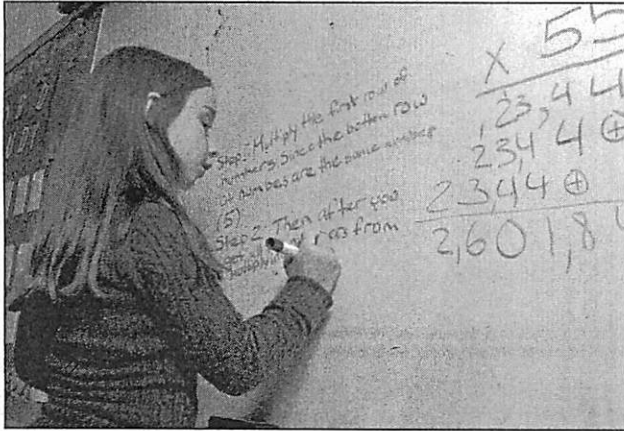 Step 1: Multiply the first row of
numbers. Since the bottom row
of numbes are the same number
(5)
Step 2: Then after you
from
X 55
23,44
23,44⊕
23,44⊕
2,601,84